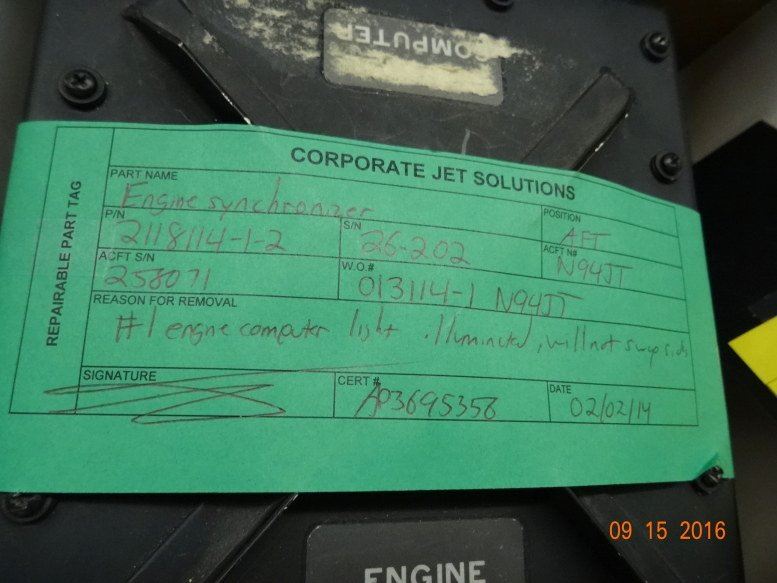 COMPUTER
CORPORATE JET SOLUTIONS
REPAIRABLE PART TAG
PART NAME
Engine synchronizer
POSITION
AFT
P/N
2118114-1-2
S/N
26-202
ACFT N#
N94JT
ACFT S/N
258071
W.O.#
013114-1 N94JT
REASON FOR REMOVAL
#1 engine computer light illuminated, will not swap sides
SIGNATURE
CERT #
AP3695356
DATE
02/02/14
ENGINE
09 15 2016